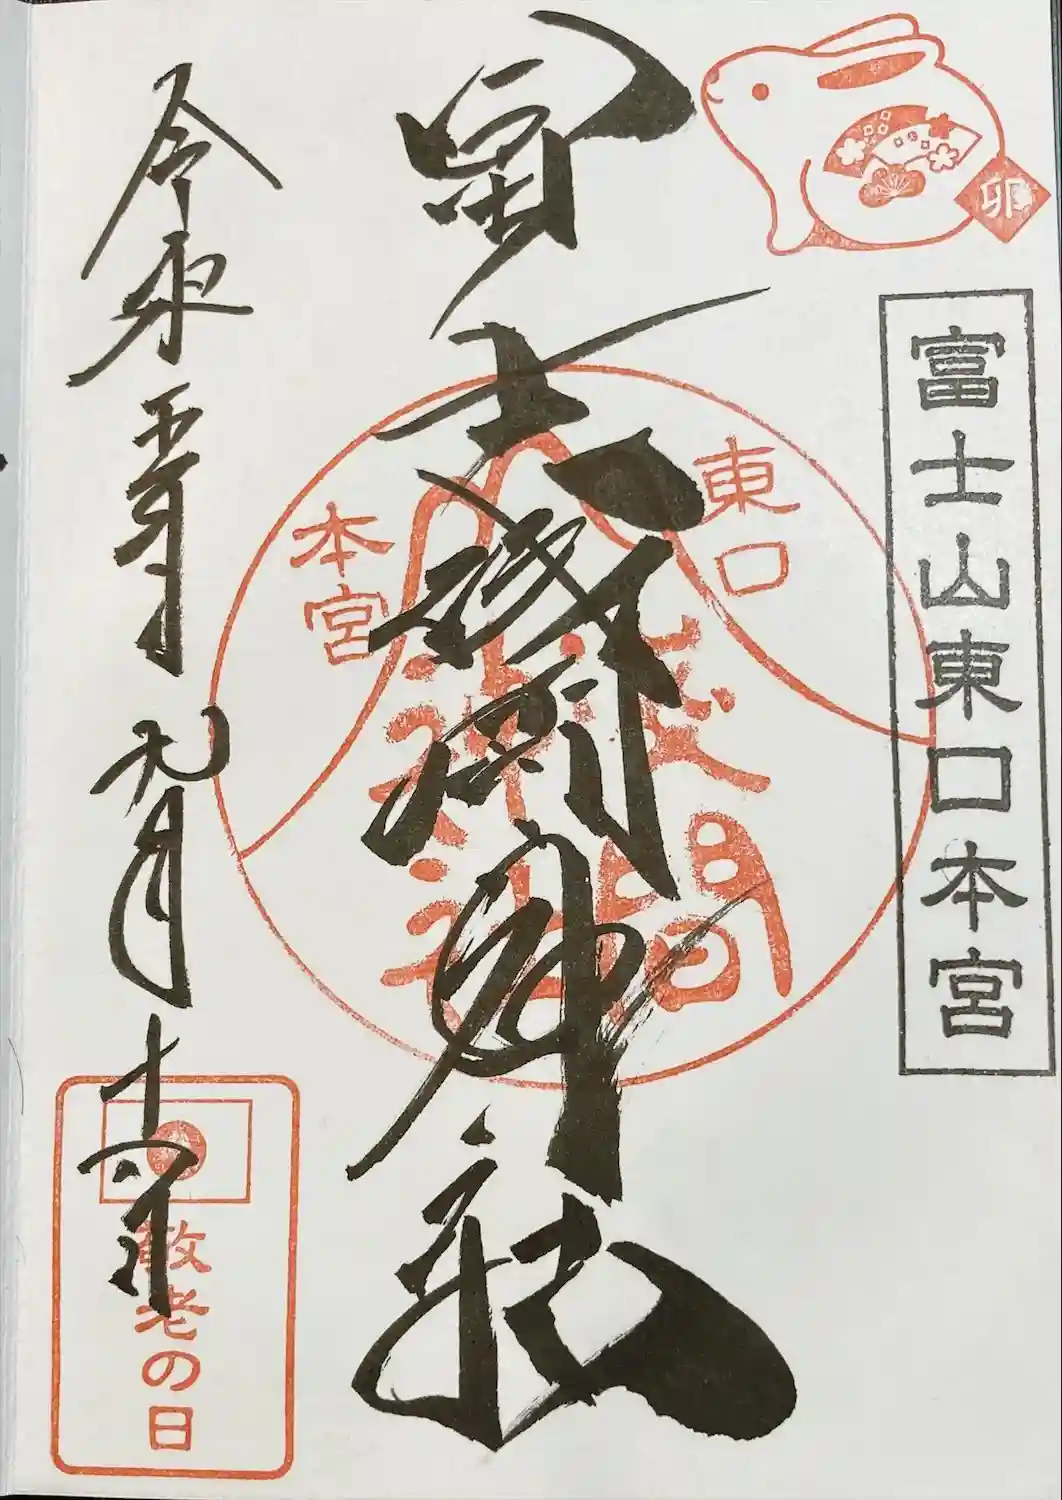 卯
富士山東口本宮
東口
本宮
浅間
神社
冨士浅間神社
令和五年九月十八日
敬老の日